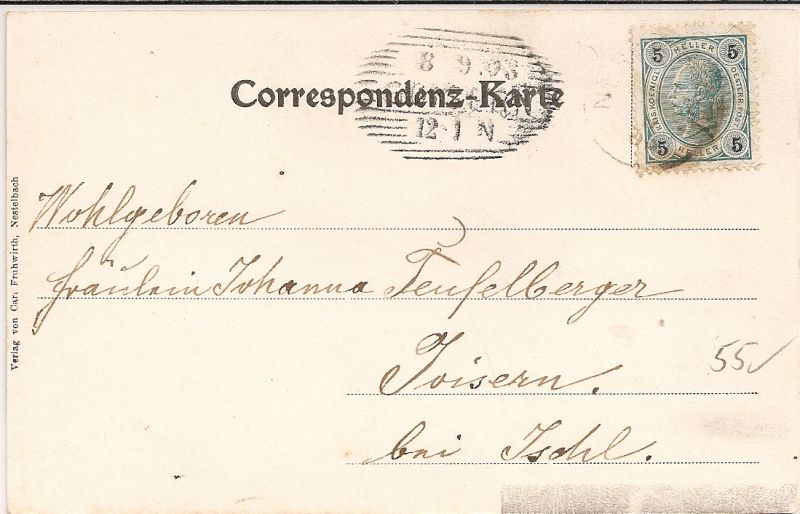 8 9 03
Correspondenz-Karte
12-1 N
5 HELLER 5
KAIS. KOENIGL. OESTERR. POST
5 HELLER 5
Wohlgeboren
Fräulein Johanna Teufelberger
Goisern.
bei Ischl.
55
Verlag von Carl Fruhwirth, Nestelbach